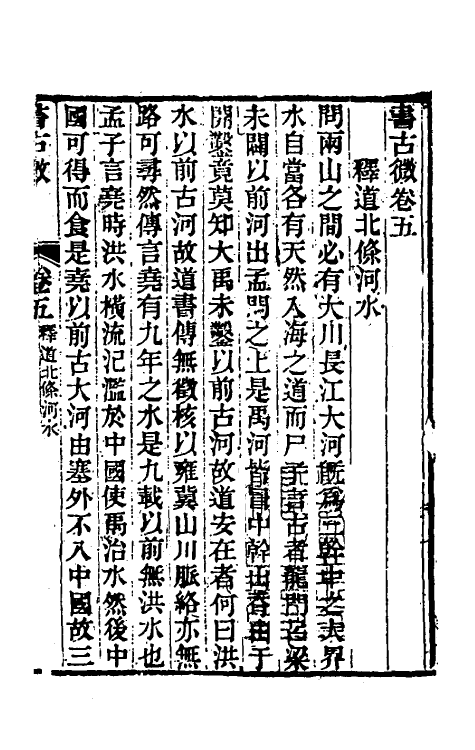 書古微卷五
釋道北條河水
問兩山之間必有大川長江大河既為三幹中之大界
水自當各有天然入海之道而尸子言古者龍門呂梁
未闢以前河出孟門之上是禹河皆冒中幹山脊由于
開鑿竟莫知大禹未鑿以前古河故道安在者何曰洪
水以前古河故道書傳無徵核以雍冀山川脈絡亦無
路可尋然傳言堯有九年之水是九載以前無洪水也
孟子言堯時洪水橫流氾濫於中國使禹治水然後中
國可得而食是堯以前古大河由塞外不入中國故三
書古微
卷五
釋道北條河水